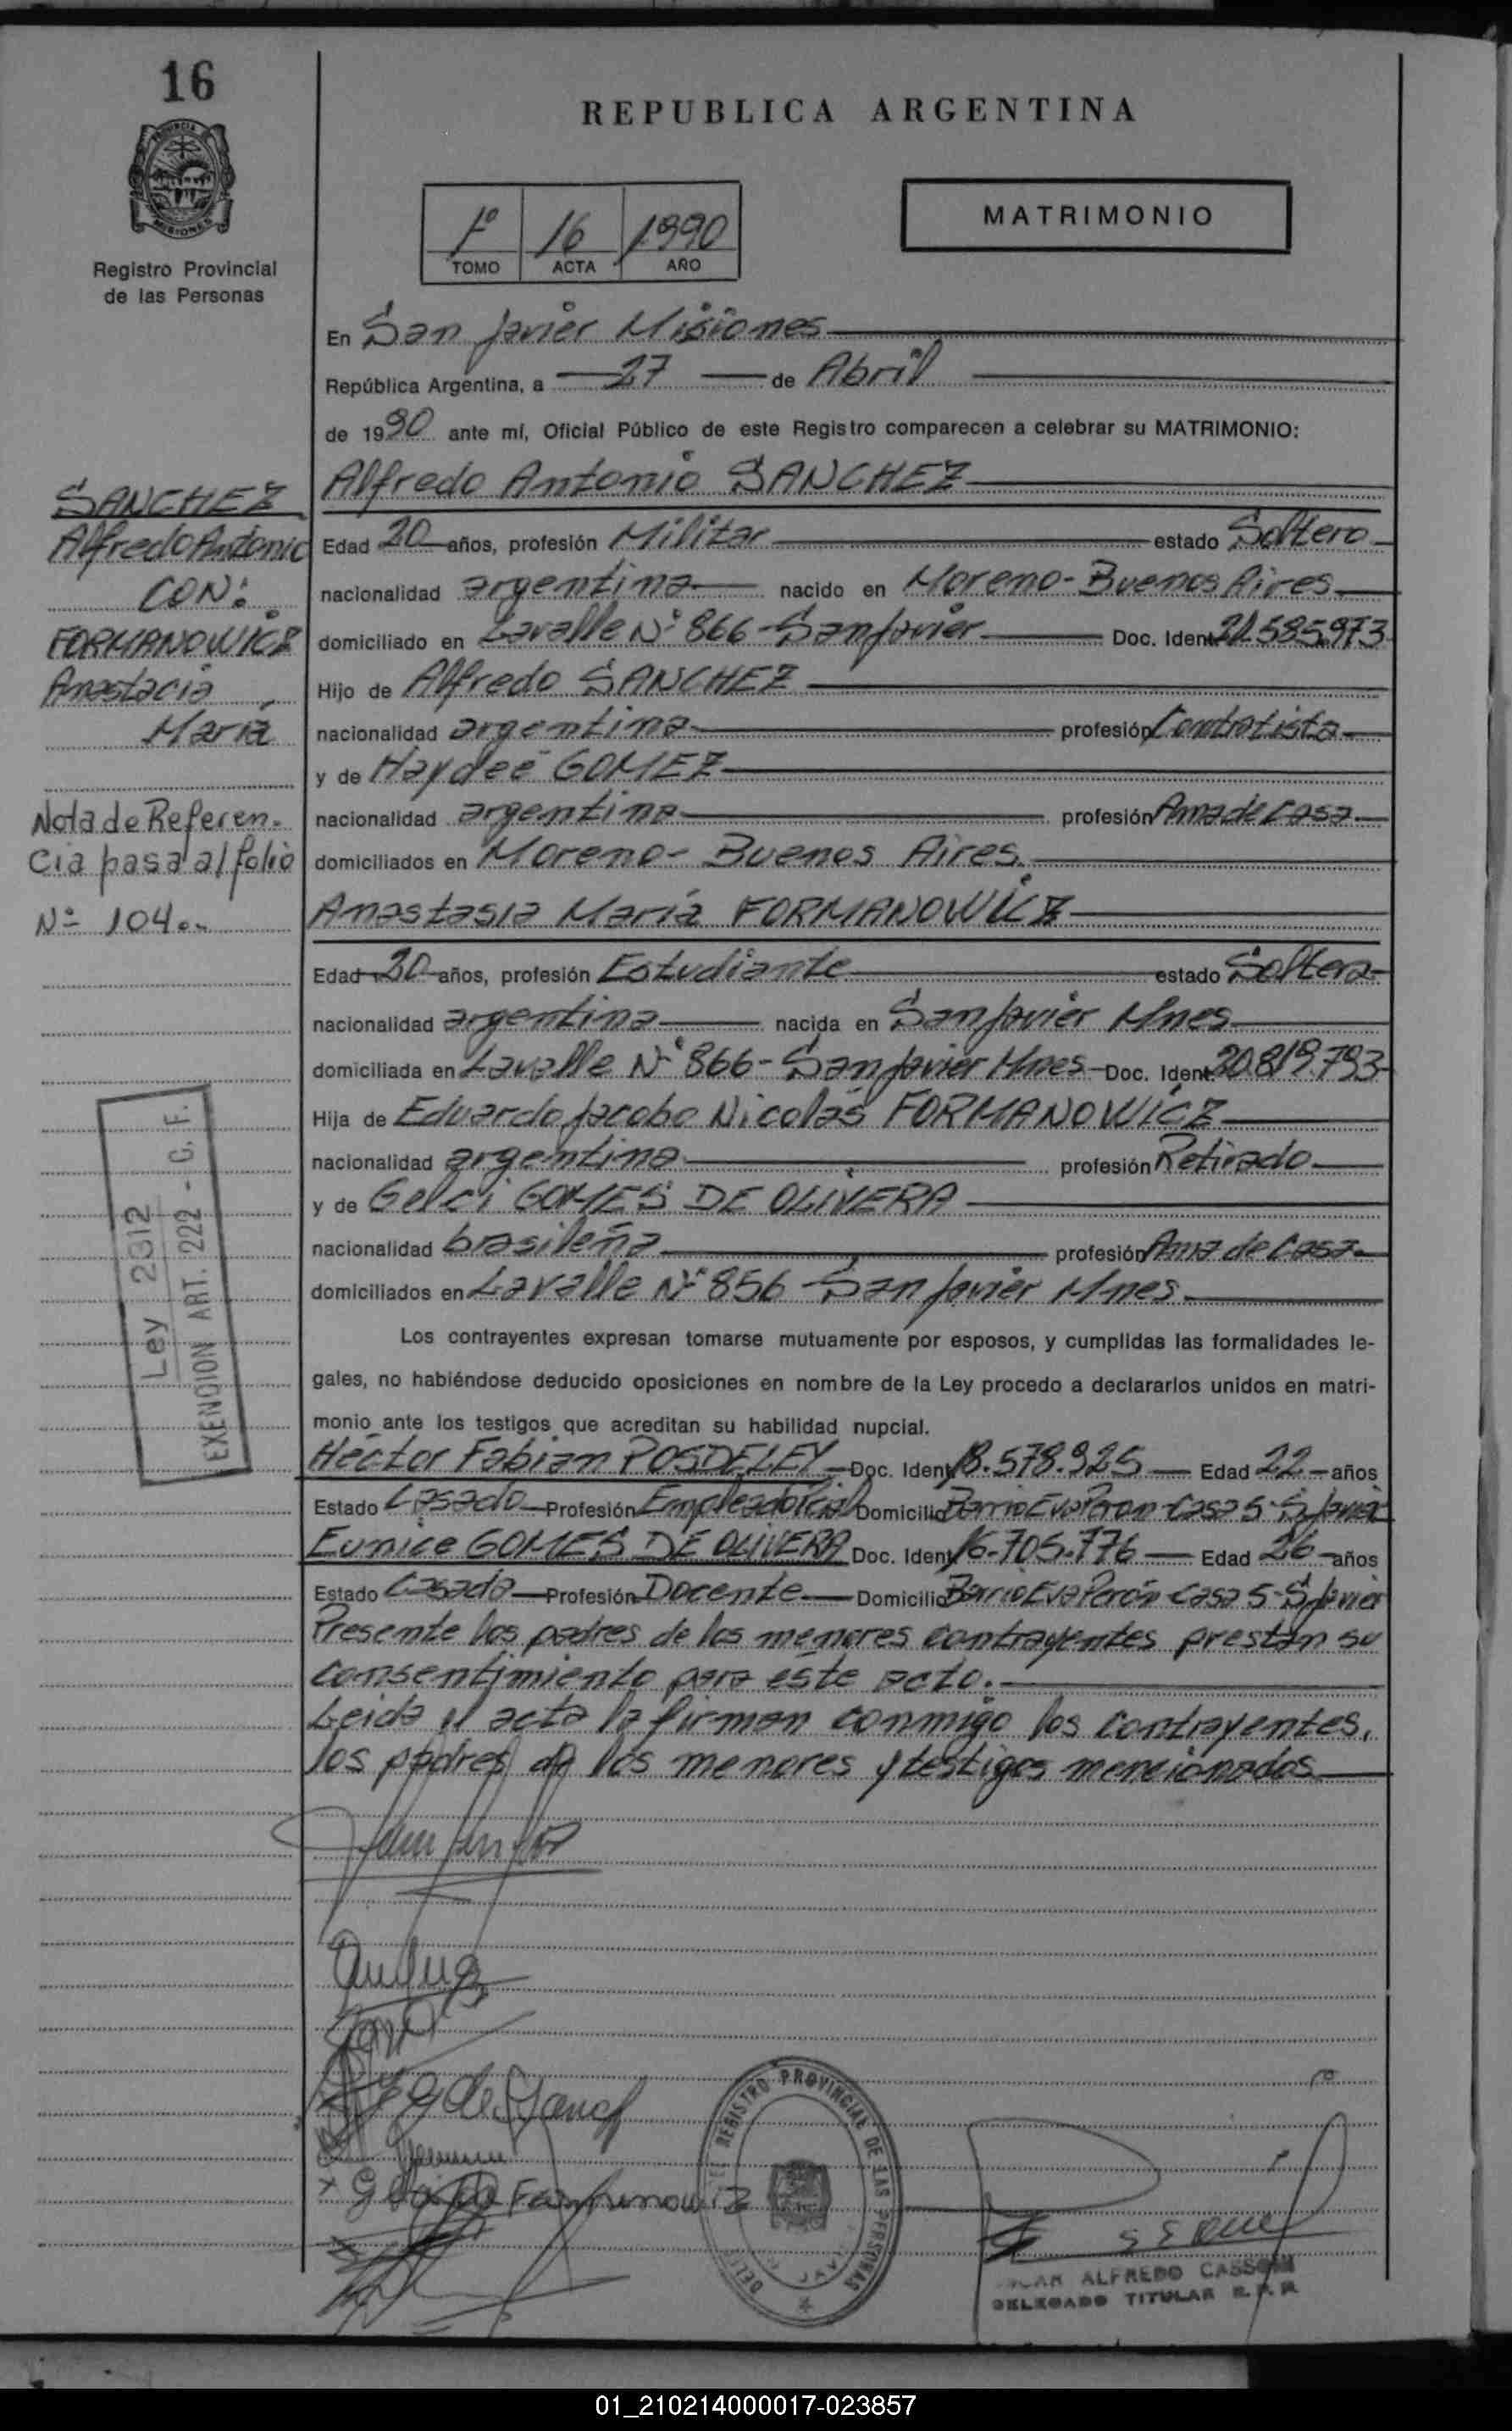 16
REPUBLICA ARGENTINA
PROVINCIA
MISIONES
Registro Provincial
de las Personas
1º 16 1990
TOMO ACTA AÑO
MATRIMONIO
En San Javier Misiones
República Argentina, a 27 de Abril
de 1990 ante mí, Oficial Público de este Registro comparecen a celebrar su MATRIMONIO:
SANCHEZ
Alfredo Antonio
CON:
FORMANOWICZ
Anastacia
María
Nota de Referen-
cia pasa al folio
Nº 104.-
Alfredo Antonio SANCHEZ
Edad 20 años, profesión Militar estado Soltero
nacionalidad argentina nacido en Moreno- Buenos Aires
domiciliado en Lavalle Nº 866 - San Javier Doc. Ident. 21.585.973
Hijo de Alfredo SANCHEZ
nacionalidad argentina profesión Contratista
y de Haydeé GOMEZ
nacionalidad argentina profesión Ama de casa
domiciliados en Moreno- Buenos Aires
Anastasia María FORMANOWICZ
Edad 20 años, profesión Estudiante estado Soltera
nacionalidad argentina nacida en San Javier Mnes
domiciliada en Lavalle Nº 866- San Javier Mnes Doc. Ident. 20.819.793
Hija de Eduardo Jacobo Nicolás FORMANOWICZ
nacionalidad argentina profesión Retirado
y de Gelci GOMES DE OLIVERA
nacionalidad brasileña profesión Ama de casa
domiciliados en Lavalle Nº 856 San Javier Mnes
Ley 2312
EXENCION ART. 222 - C. F.
Los contrayentes expresan tomarse mutuamente por esposos, y cumplidas las formalidades le-
gales, no habiéndose deducido oposiciones en nombre de la Ley procedo a declararlos unidos en matri-
monio ante los testigos que acreditan su habilidad nupcial.
Héctor Fabian POSDELEY Doc. Ident. 18.578.925 Edad 22 años
Estado Casado Profesión Empleado Pcial Domicilio Barrio Eva Perón Casa 5- S. Javier
Eunice GOMES DE OLIVERA Doc. Ident. 16.705.776 Edad 26 años
Estado Casada Profesión Docente Domicilio Barrio Eva Perón Casa 5- S. Javier
Presente los padres de los menores contrayentes prestan su
consentimiento para éste acto.
Leida el acta la firman conmigo los contrayentes,
los padres de los menores y testigos mencionados
de Sanch
Formanowiz
REGISTRO PROVINCIAL DE LAS PERSONAS
ALFREDO
DELEGADO TITULAR R. P. P.
01_210214000017-023857